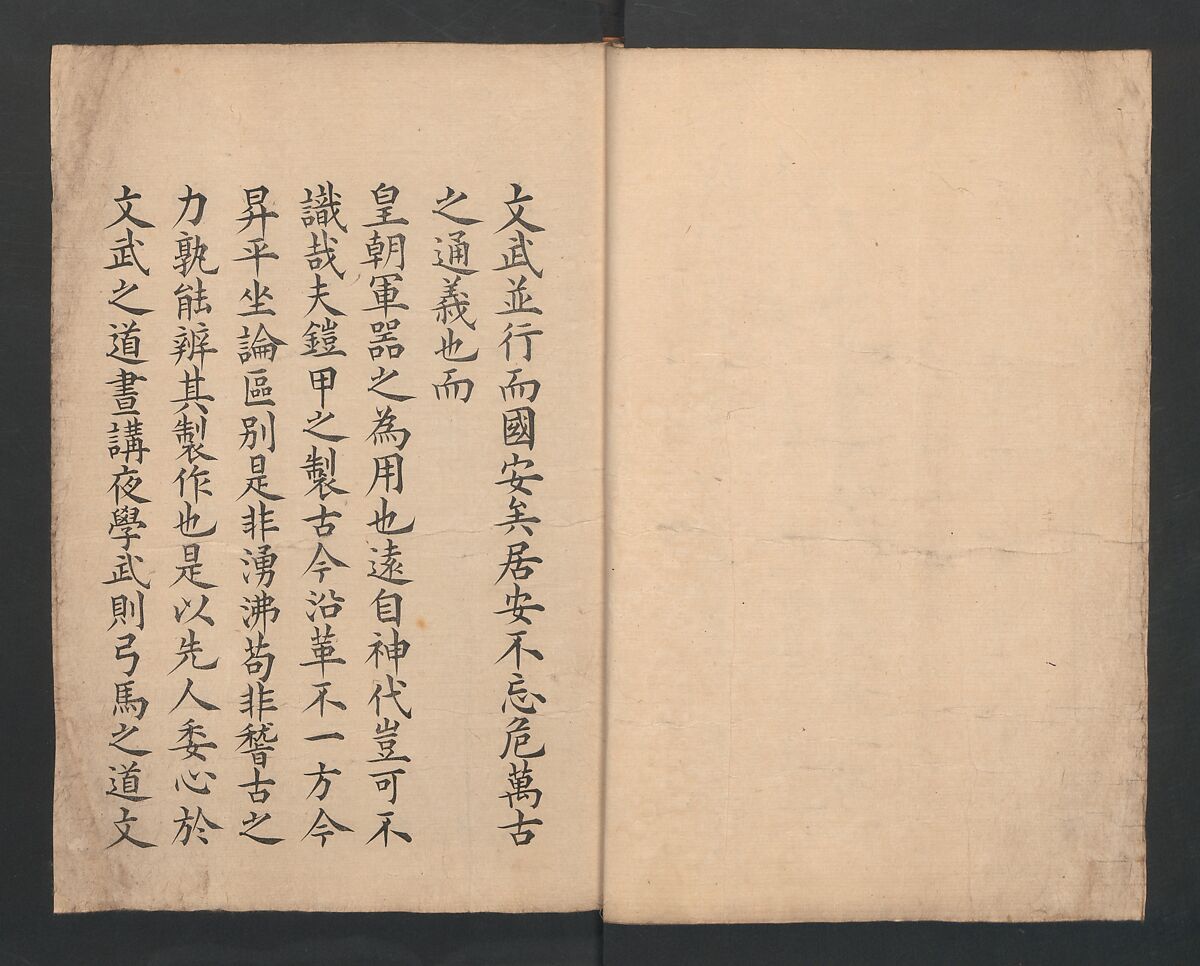 文武並行而國安矣居安不忘危萬古
之通義也而
皇朝軍器之為用也遠自神代豈可不
識哉夫鎧甲之製古今沿革不一方今
昇平坐論區別是非湧沸苟非稽古之
力孰能辨其製作也是以先人委心於
文武之道晝講夜學武則弓馬之道文